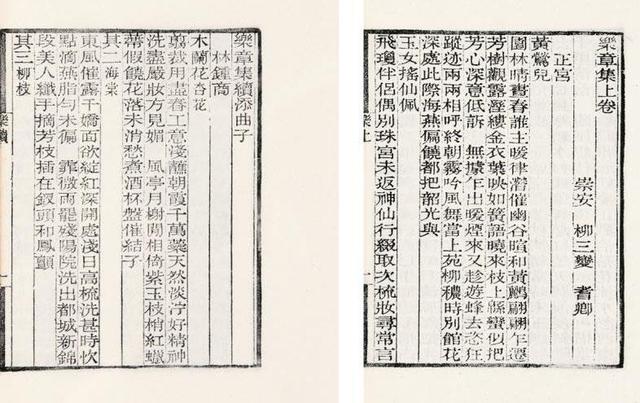 樂章集上卷
崇安 柳三變 耆卿
正宮
黃鶯兒
園林晴晝春誰主暖律潛催幽谷暄和黃鸝翩翩乍遷
芳樹觀露溼縷金衣葉映如簧語曉來枝上緜蠻似把
芳心深意低訴 無據乍出暖煙來又趁遊蜂去恣狂
蹤跡兩兩相呼終朝霧吟風舞當上苑柳穠時別館花
深處此際海燕偏饒都把韶光與
玉女搖仙佩
飛瓊伴侶偶別珠宮未返神仙行綴取次梳妝尋常言
樂上
樂章集續添曲子
林鍾商
木蘭花 杏花
翦裁用盡春工意淺蘸朝霞千萬蘂天然淡泞好精神
洗盡嚴妝方見媚 風亭月榭閒相倚紫玉枝梢紅蠟
蔕假饒花落未消愁煮酒杯盤催結子
其二 海棠
東風催露千嬌面欲綻紅深開處淺日高梳洗甚時忺
點滴燕脂勻未徧 霏微雨罷殘陽院洗出都城新錦
段美人纖手摘芳枝插在釵頭和鳳顫
其三 柳枝
樂續